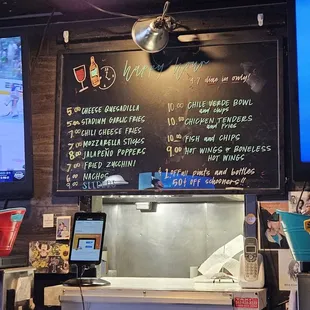 happy hour
4-7 dine in only!
5.00 CHEESE QUESADILLA
5.00 STADIUM GARLIC FRIES
7.00 CHILI CHEESE FRIES
7.00 MOZZARELLA STICKS
8.00 JALAPEÑO POPPERS
7.00 FRIED ZUCCHINI
6.00 NACHOS
9.00
10.00 CHILE VERDE BOWL
and chips
10.00 CHICKEN TENDERS
and fries
10.00 FISH and CHIPS
9.00 HOT WINGS or BONELESS
HOT WINGS
$1 off all pints and bottles
50¢ off schooners